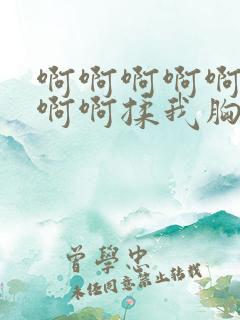 啊啊啊啊啊
啊啊揉我胸
曾學忠
未经同意禁止转载